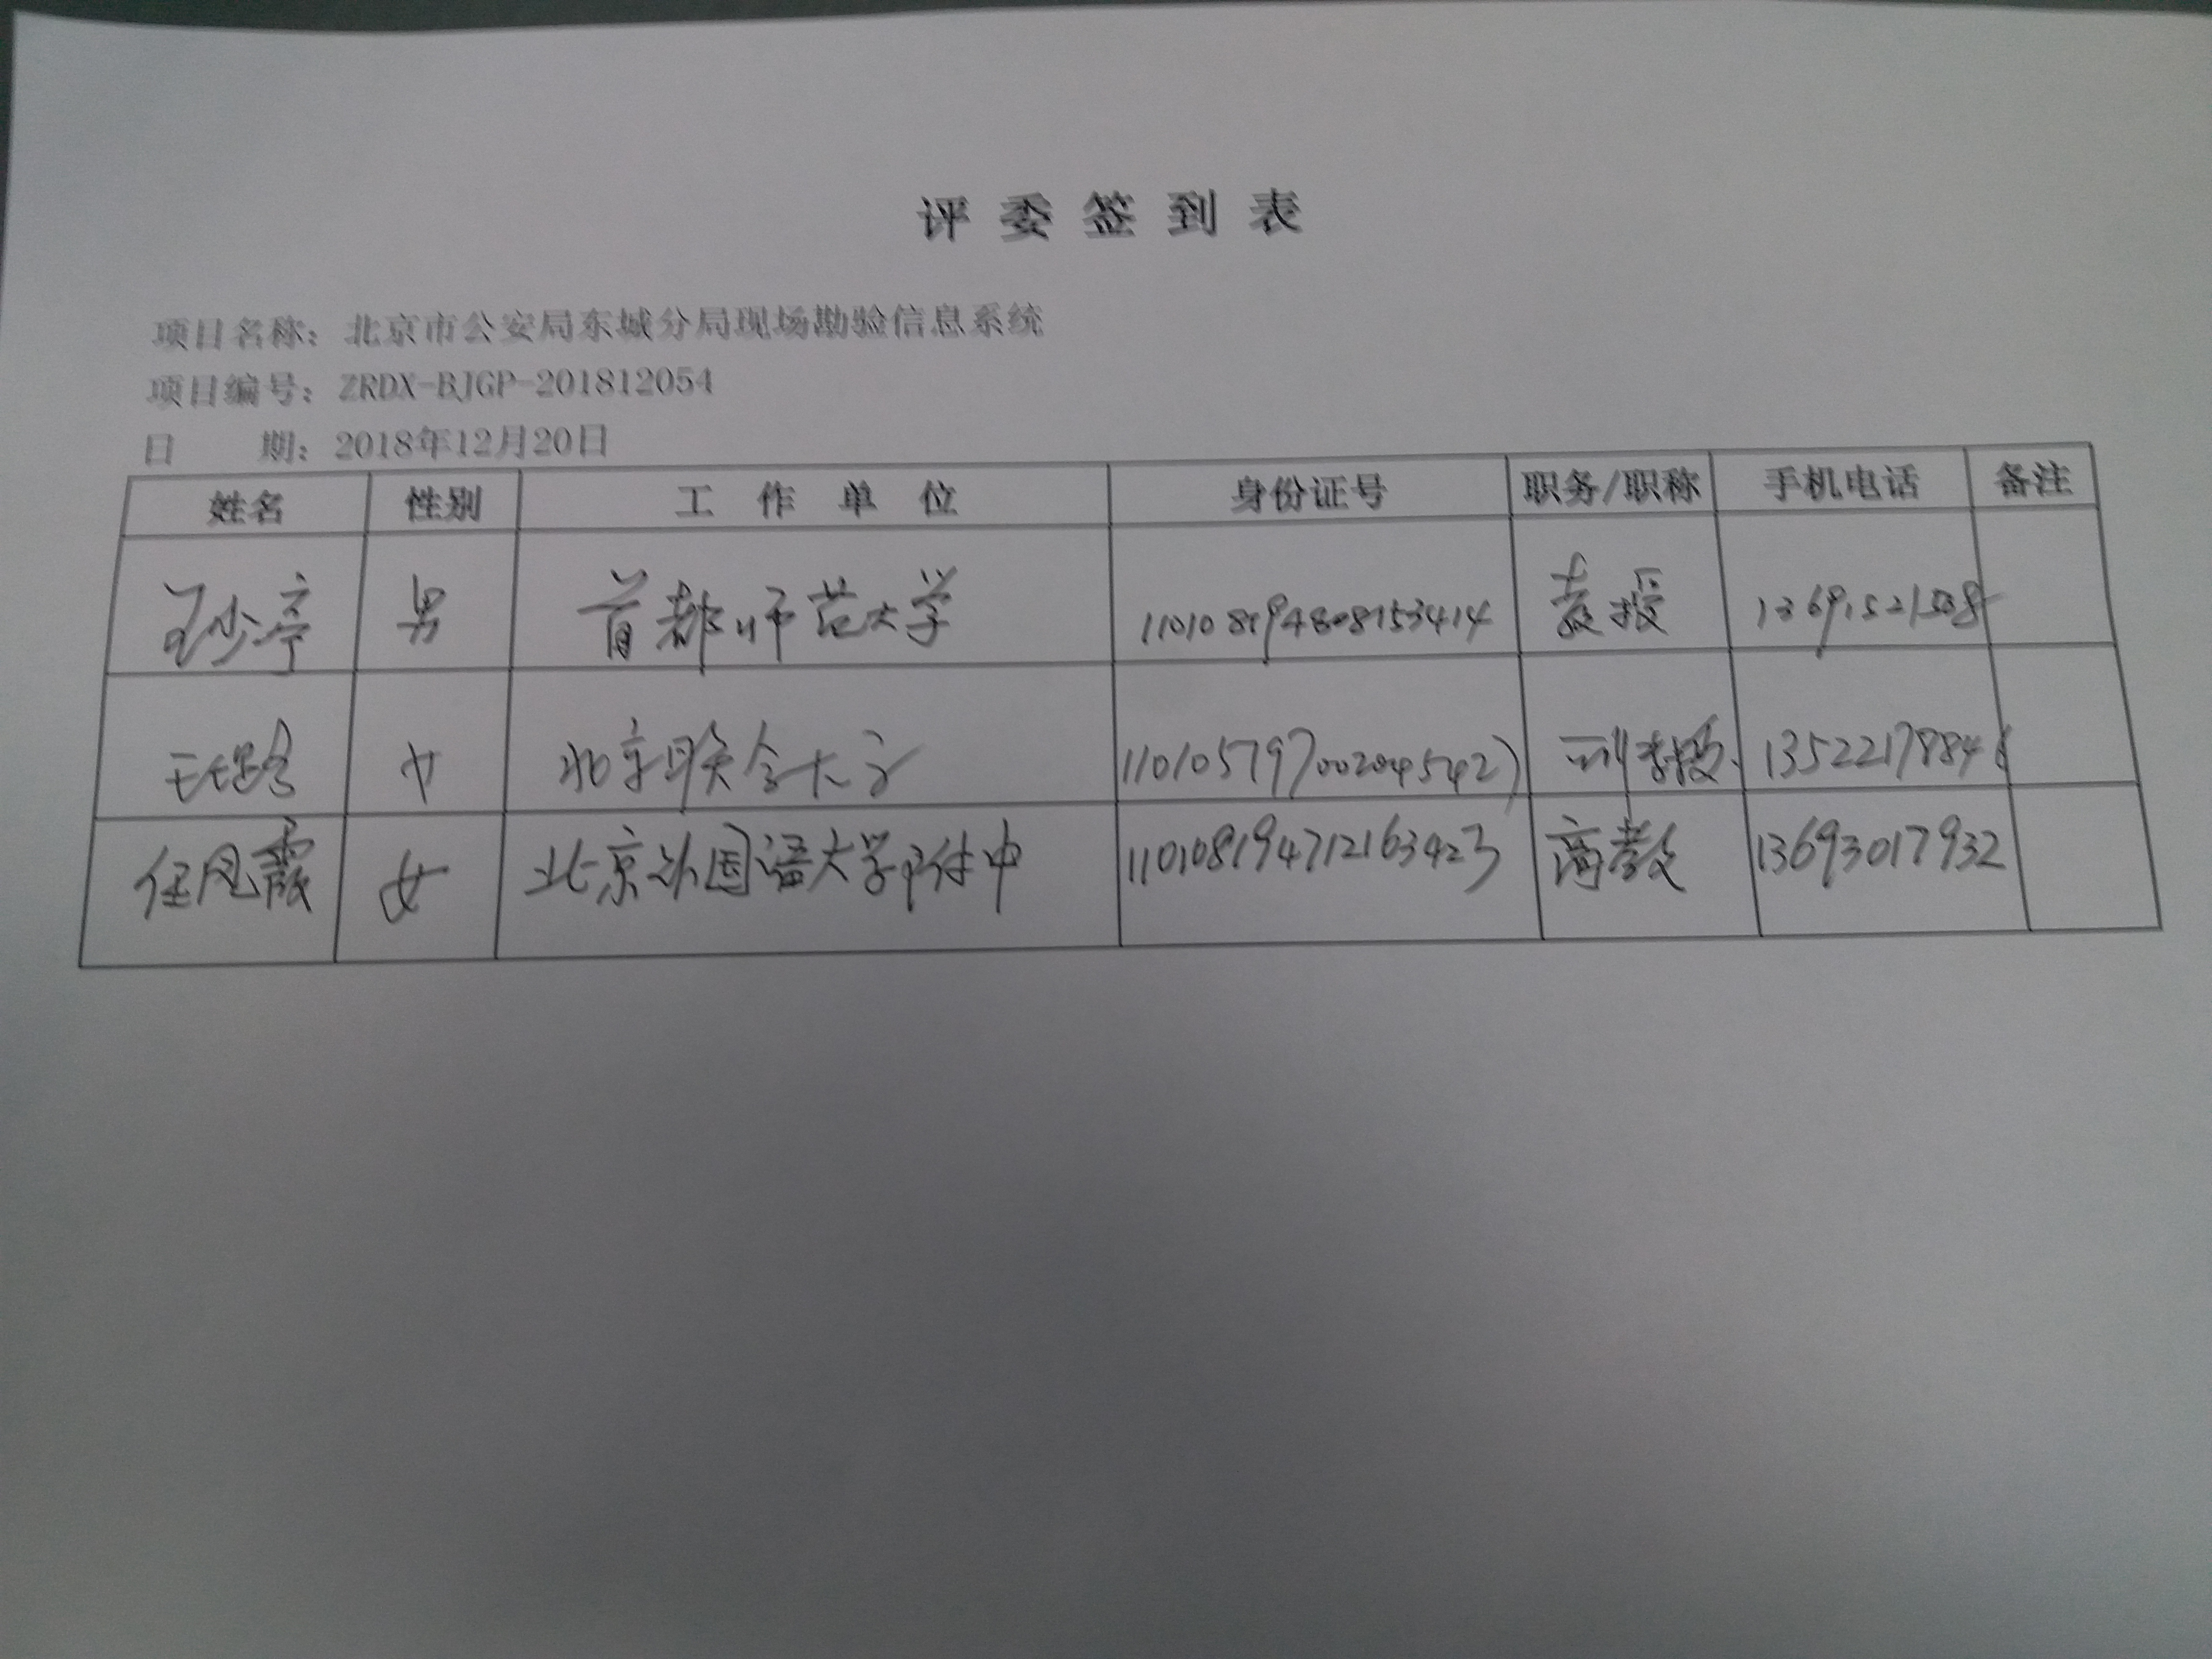 评委签到表
项目名称：北京市公安局东城分局现场勘验信息系统
项目编号：ZRDX-BJGP-201812054
日 期：2018年12月20日
姓名 性别 工作单位 身份证号 职务/职称 手机电话 备注
男 首都师范大学 教授
女 北京联合大学 副教授
任凤霞 女 北京外国语大学附中 110108194712163423 高教 13693017932